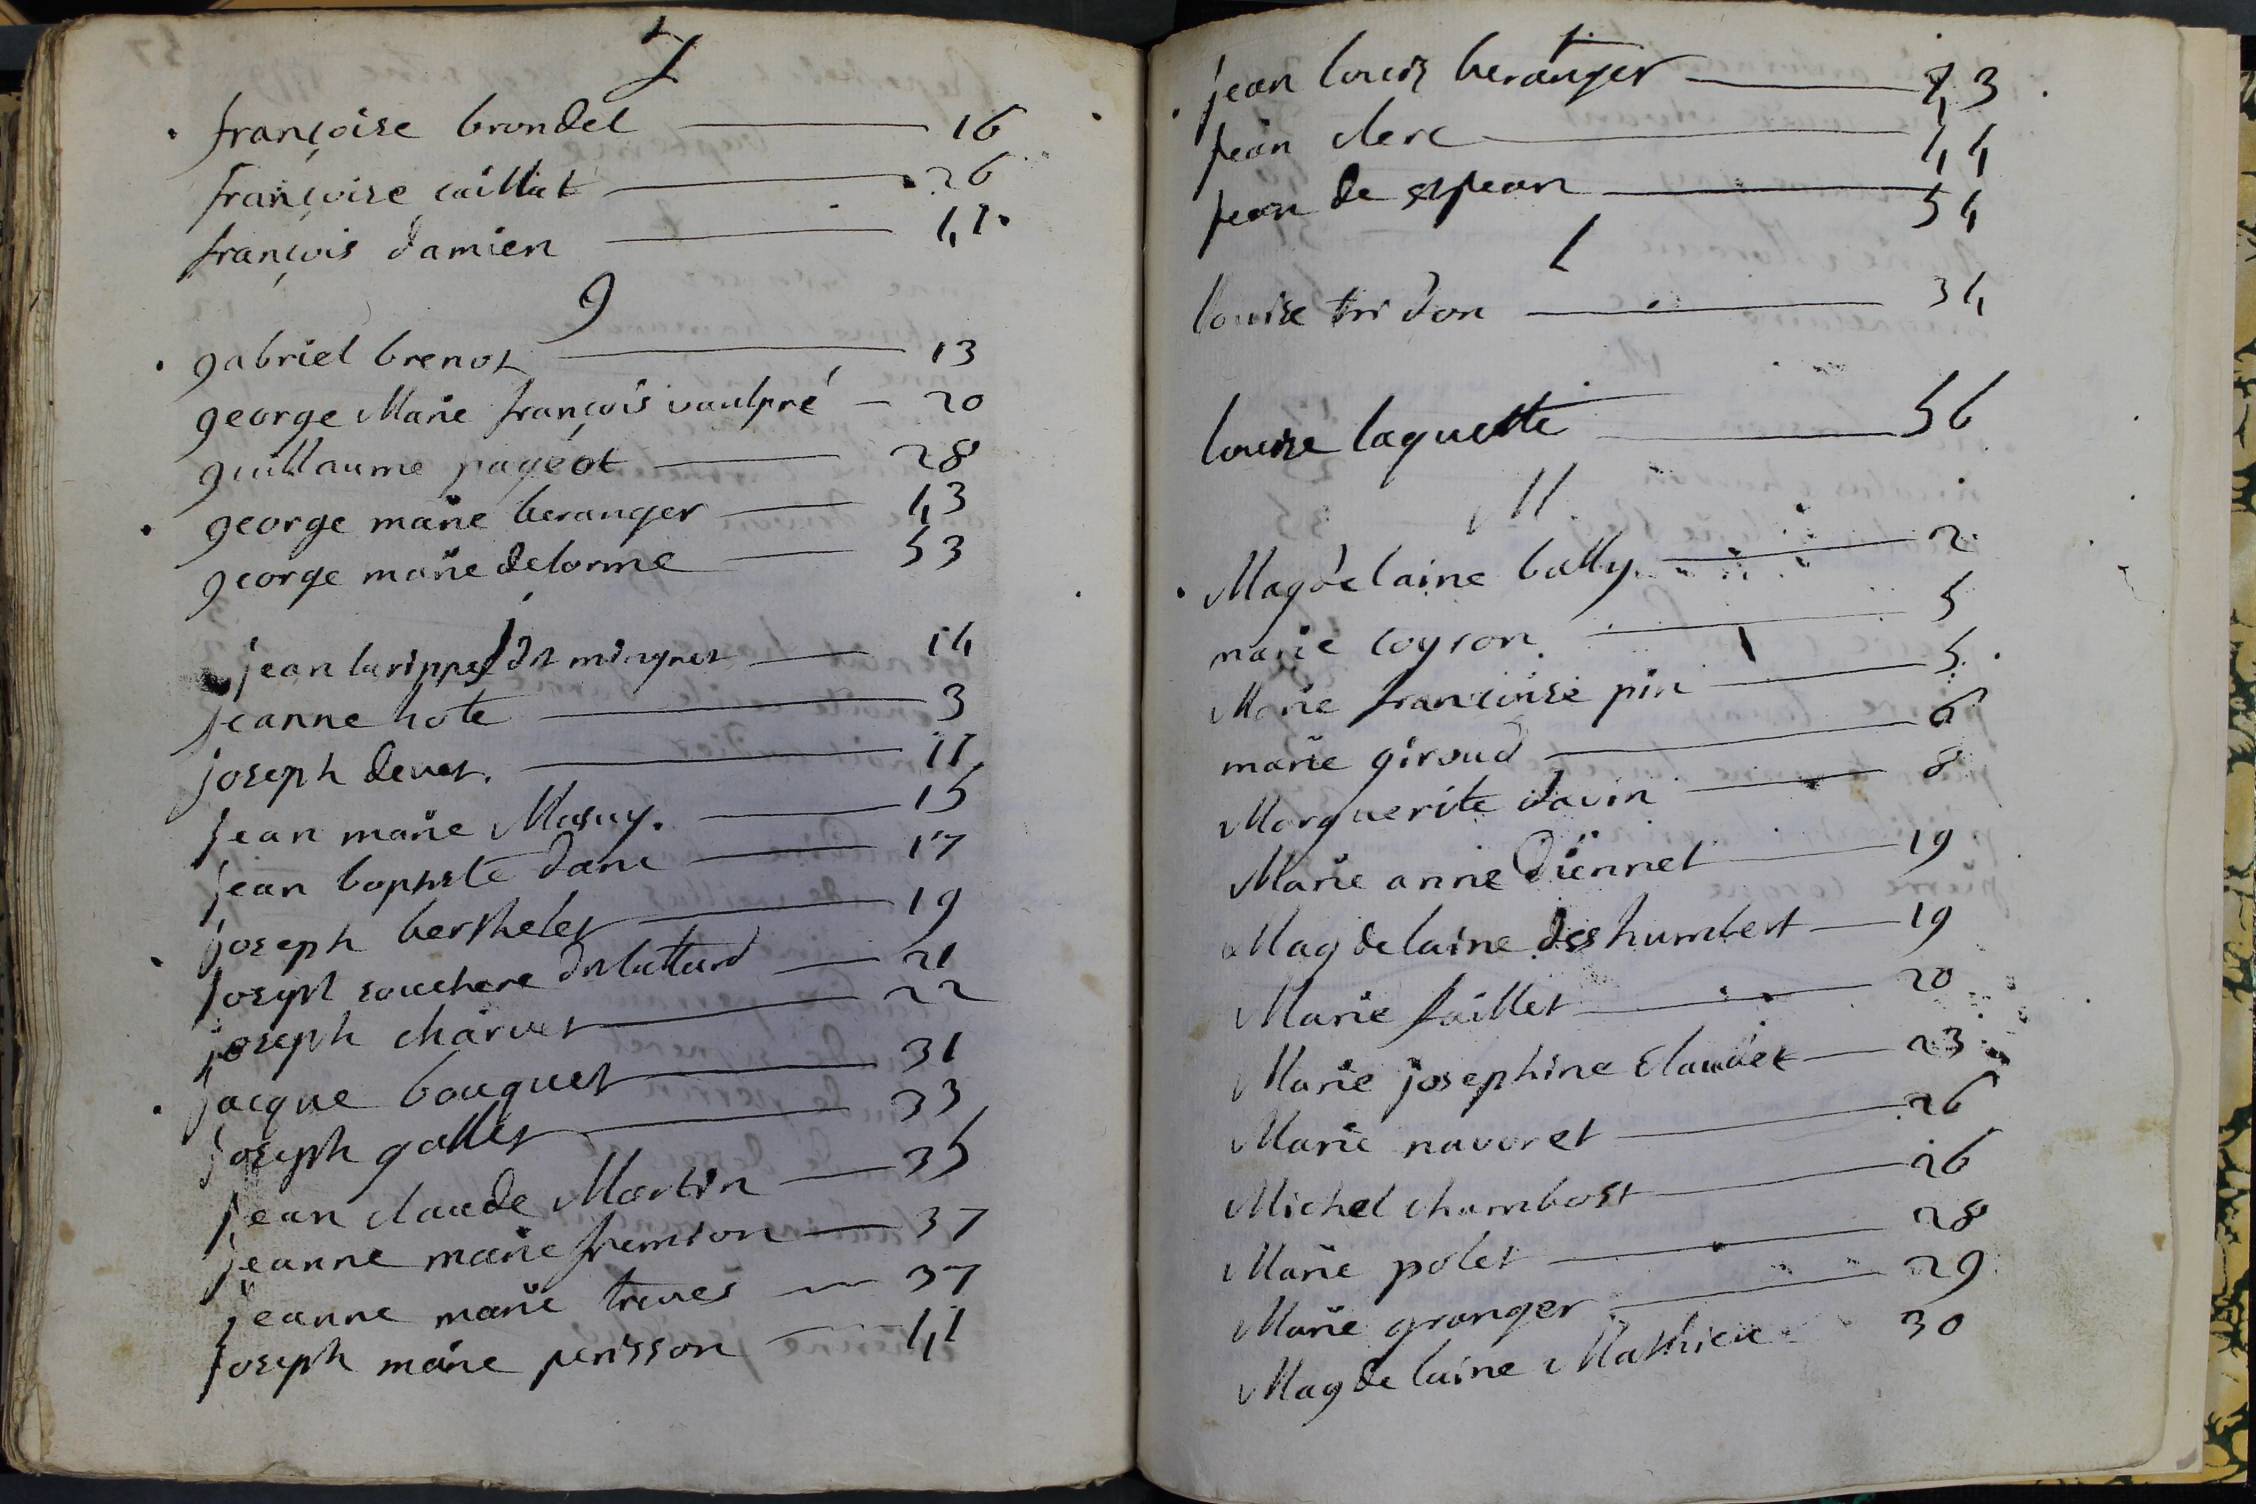 f
françoise brondel 16
françoise caillat 26
françois damien 41
g
gabriel brenot 13
george Marie françois vaulpré 20
guillaume pageot 28
george marie beranger 43
george marie delorme 53
j
jean larippe dit mingret 14
jeanne hote 3
joseph devet. 11
jean marie Masuy. 15
jean baptiste danc 17
joseph berthelet 19
joseph souchere dit lattard 21
joseph charvet 22
jacque bouquet 31
joseph gallet 33
jean claude Martin 35
jeanne marie fremion 37
jeanne marie treves 37
joseph marie perisson 41
jean louis beranger 43
jean clerc 44
jean de st jean 54
l
louise tridon 34
louise laquette 56
M
Magdelaine bally 2
marie coyron 5
Marie françoise pin 5
marie giroud 6
Marguerite davin 8
Marie anne diennet 19
Magdelaine des humbert 19
Marie faillet 20
Marie josephine claudet 23
Marie navoret 26
Michel chambost 26
Marie polet 28
Marie granger 29
Magdelaine Mathieu 30